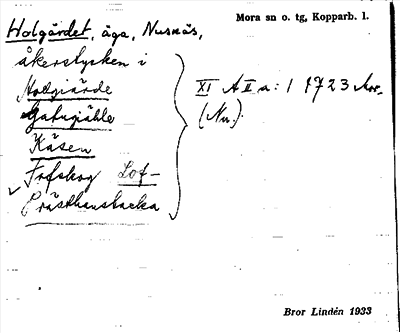 Mora sn o. tg, Kopparb. l.
Holgärdet, äga, Nusnäs,
åkerstycken i
Holgiärde
Gatugiähle
Käsen
Fofskog Lof-
Prästhansbacka
XI A II a: 1 1723
(Nu.)
Bror Lindén 1933